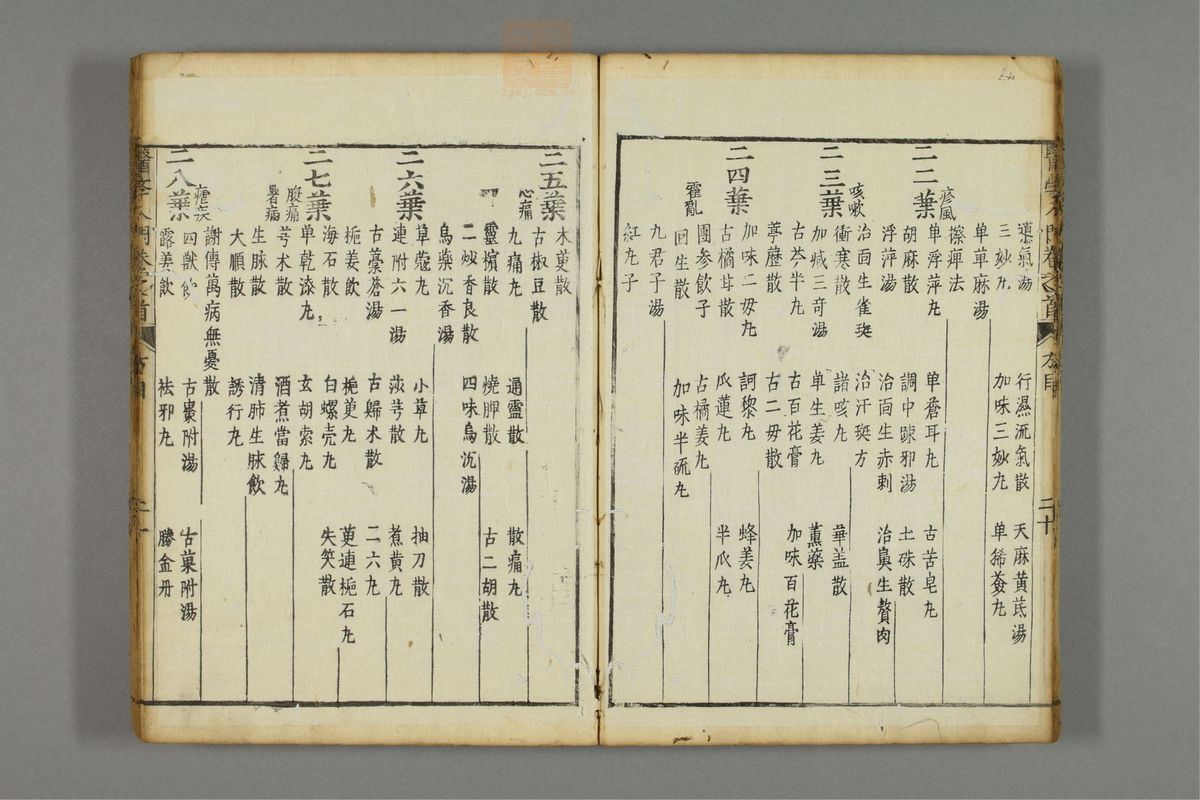 導氣湯 行濕流氣散 天麻黃芪湯
三妙丸 加味三妙丸 单豨薟丸
单草麻湯
擦痺法
二二葉 疹風 单浮萍丸 单蒼耳丸 古苦皂丸
胡麻散 調中踈邪湯 土硃散
浮萍湯 治面生赤刺 治鼻生贅肉
治面生雀斑 治汗斑方
二三葉 咳嗽 衝寒散 諸咳丸 華盖散
加減三奇湯 单生姜丸 薰藥
古芩半丸 古百花膏 加味百花膏
葶藶散 古二毋散
二四葉 加味二毋丸 訶黎丸 蜂姜丸
古橘甘散 瓜蓮丸 半瓜丸
霍亂 團参飲子 古橘姜丸
回生散 加味半硫丸
九君子湯
紅丸子
醫學入門卷之首 方目 二十
二五葉 木萸散
心痛 古椒豆散
九痛丸 通靈散 散痛丸
靈檳散 燒脾散 古二胡散
二炒香良散 四味烏沉湯
烏藥沉香湯
二六葉 草蔻丸 小草丸 抽刀散
連附六一湯 莎芎散 煮黄丸
古藁蒼湯 古歸术散 二六丸
栀姜飲 栀萸丸 萸連栀石丸
二七葉 海石散 白螺壳丸 失笑散
单乾漆丸 玄胡索丸
腹痛 芎术散 酒煮當歸丸
暑病 生脉散 清肺生脉飲
大順散 誘行丸
瘧疾 謝傳萬病無憂散
二八葉 四獸飲 古棗附湯 古菓附湯
露姜飲 祛邪丸 勝金丹
醫學入門卷之首 方目 二十